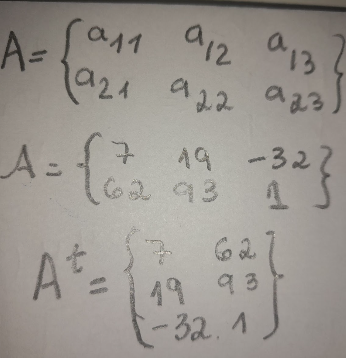 A = { a₁₁ a₁₂ a₁₃
a₂₁ a₂₂ a₂₃ }
A = { 7 19 -32
62 93 1 }
Aᵗ = { 7 62
19 93
-32. 1 }